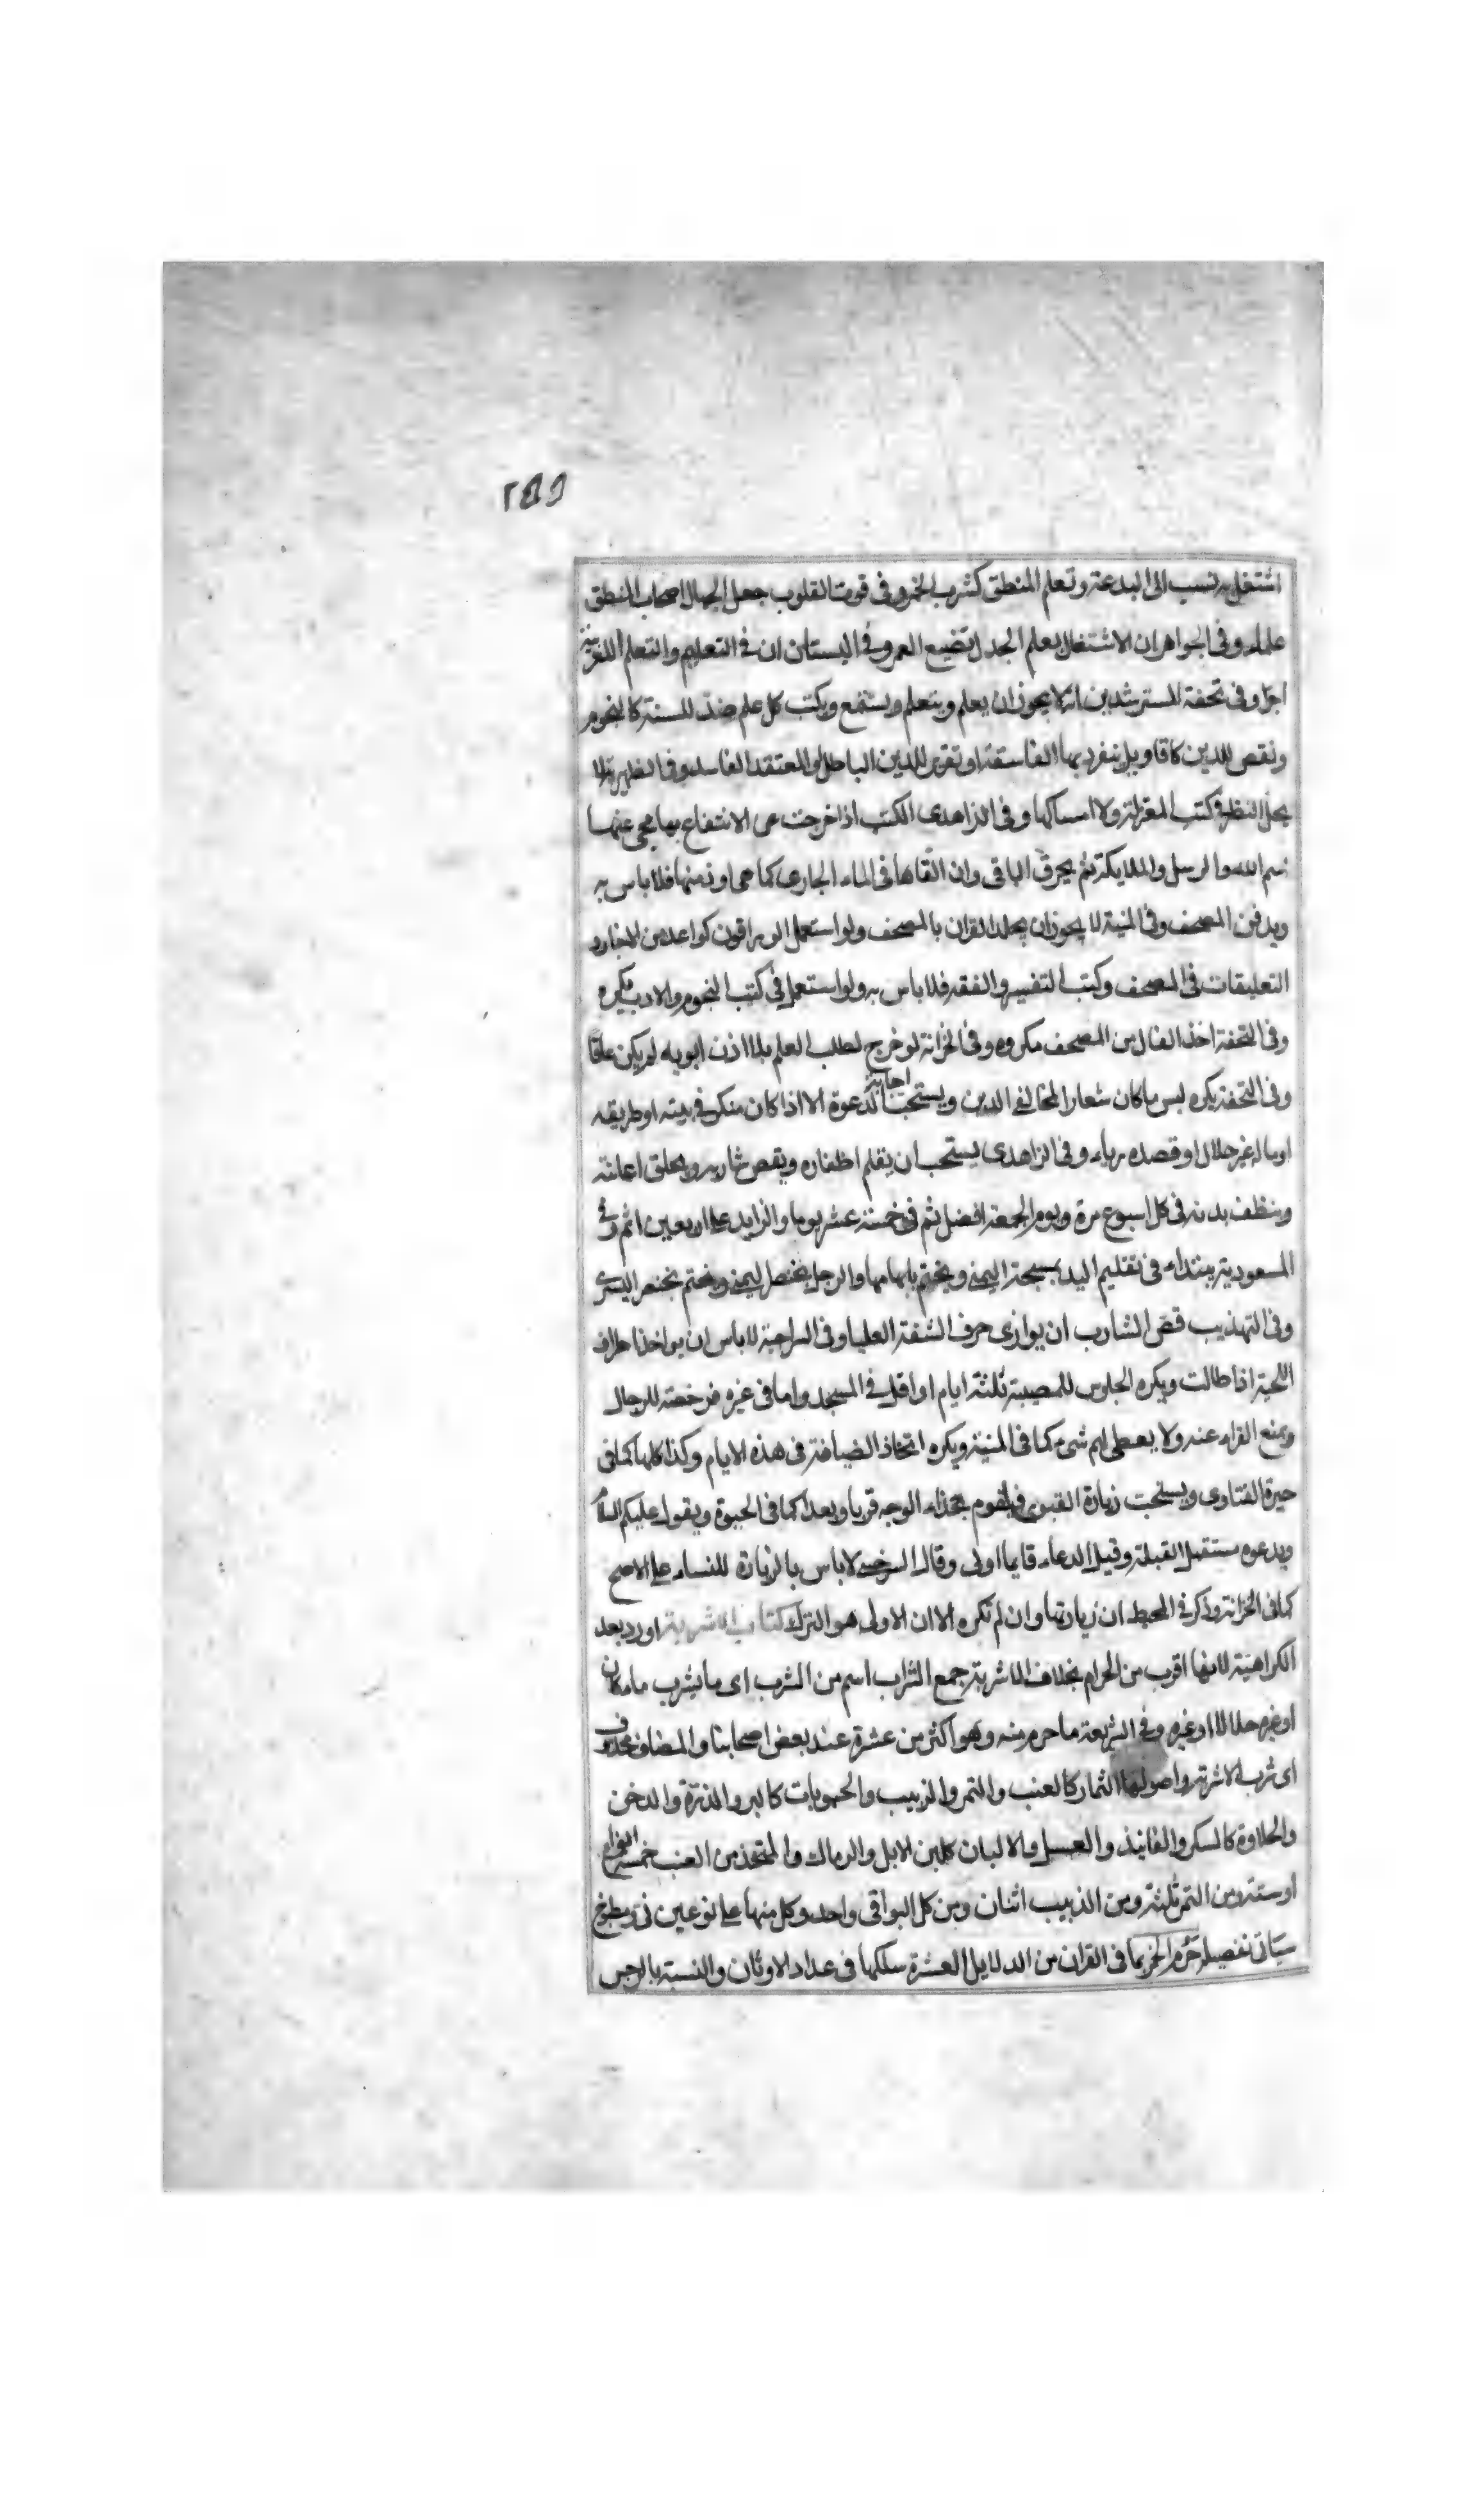 ٢٥٥
اشتغل به نسب الى البدعة وتعلم المنطق كشرب الخمر وفى قوت القلوب جعل الجهال اصحاب المنطق
علماء وفى الجواهر ان الاشتغال بعلم الجدل تضيع العمر وفى البستان ان فى التعليم والتعلم
اجرا وفى تحفة المسترشدين انه لا يجوز ان يعلم ويتعلم ويستمع ويكتب كل علم ضد للسنة كالنجوم
ونقص للدين كاقاويل ينفرد بها الفاسقة او تقرير للدين الباطل او المعتقد الفاسد وفى الظهيرية لا
يحل النظر فى كتب المعتزلة ولا امساكها وفى الزاهدى الكتب اذا خرجت عن الانتفاع بها محى عنها
اسم الله والرسل والملايكة ثم يحرق الباقى وان القاها فى الماء الجارى كما هى او دفنها فلا باس به
ويدفن المصحف وفى المنية لا يجوز ان يجلد القران بالمصحف ولو استعمل الوراقون كواغد من
التعليقات فى المصحف وكتب التفسير والفقه فلا باس به ولو استعمل فى كتب النجوم والادب يكره
وفى التحفة اخذ الفال من المصحف مكروه وفى الخزانة لو خرج لطلب العلم بلا اذن ابويه لم يكن عاقا
وفى التحفة يكره لبس ما كان شعار المخالفى الدين ويستحب اجابة الدعوة الا اذا كان منكر فى بيته او طريقه
او ماله غير حلال او قصده رياء وفى الزاهدى يستحب ان يقلم اظفاره ويقص شاربه ويحلق اعانته
وينظف بدنه فى كل اسبوع مرة ويوم الجمعة افضل ثم فى خمسة عشر يوما والزايد على اربعين اثم وفى
المسعودية يبتداء فى تقليم اليد بسبحة اليمنى ويختم بابهامها والرجل بخنصر اليمنى ويختم بخنصر اليسرى
وفى التهذيب قص الشارب ان يوازى حرف الشفة العليا وفى السراجية لا باس ان يواخذ اطراف
اللحية اذا طالت ويكره الجلوس للمصيبة ثلثة ايام او اقل فى المسجد واما فى غيره فرخصة للرجال
ويمنع القراء عنه ولا يعطى لهم شىء كما فى المنية ويكره اتخاذ الضيافة فى هذه الايام وكذا كلها كما فى
حيرة الفتاوى ويستحب زيارة القبور فيقوم بحذاء الوجه قربا وبعدا كما فى الحيوة ويقول عليكم السلام
ويدعوه مستقبل القبلة وقيل الدعاء قايما اولى وقال السرخسى لا باس بالزيارة للنساء على الاصح
كما فى الخزانة وذكر فى المحيط ان زيارتها وان لم تكره الا ان الاولى هو الترك كتاب الاشربة اورد بعد
الكراهية لانها اقرب من الحرام بخلاف الاشربة جمع الشراب اسم من الشرب اى ما يشرب ماء كان
او غيره حلالا او غيره وفى الشريعة ما حرم منه وهو اكثر من عشرة عند بعض اصحابنا والمضاف محذوف
اى شرب الاشربة واصولها الثمار كالعنب والتمر والزبيب والحبوبات كالبر والذرة والدخن
والحلاوة كالسكر والفانيذ والعسل والالبان كلبن الابل والرماك والمتخذ من العنب خمسة انواع
او ستة ومن التمر ثلثة ومن الزبيب اثنان ومن كل البواقى واحد وكل منها على نوعين نى ومطبخ
سياتى تفصيله حرم الخمر بما فى القران من الدلايل العشرة سلكها فى عداد الاوثان والنسبة بالرجس